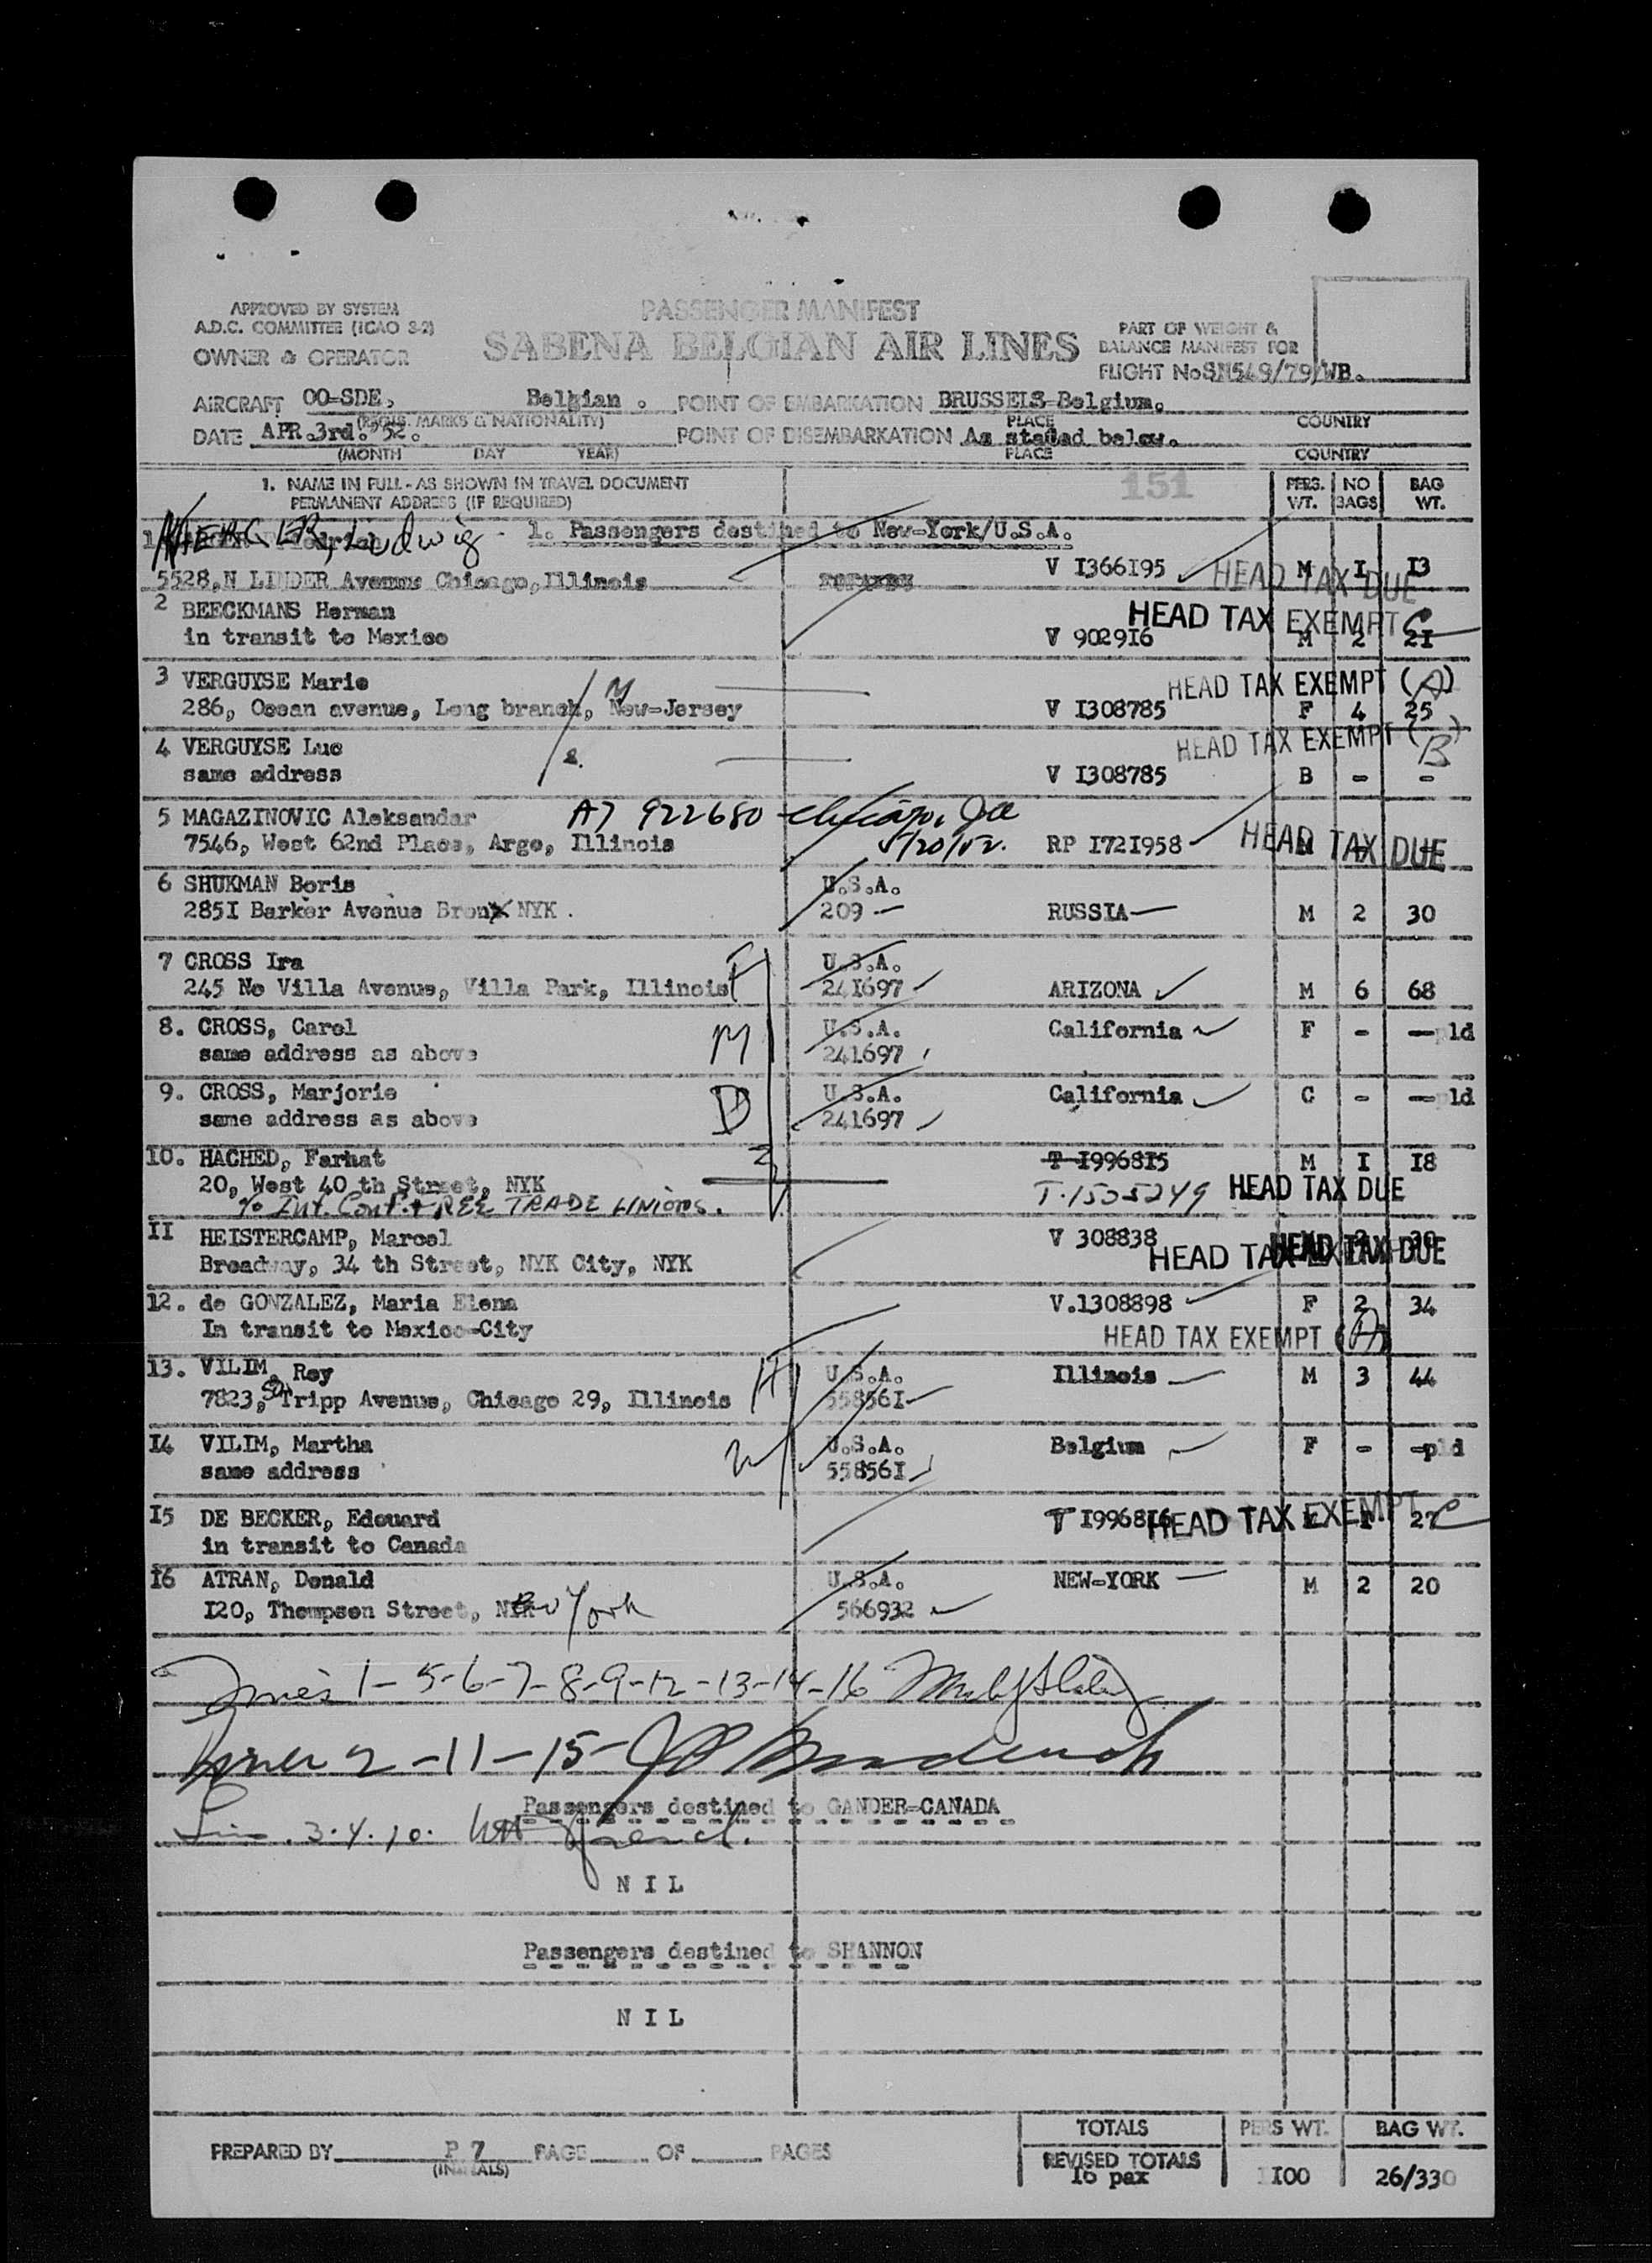 APPROVED BY SYSTEM
A.D.C. COMMITTEE (ICAO S-2)
OWNER & OPERATOR
PASSENGER MANIFEST
SABENA BELGIAN AIR LINES
PART OF WEIGHT &
BALANCE MANIFEST FOR
FLIGHT No SN549/79/WB.
AIRCRAFT OO-SDE, Belgian. POINT OF EMBARKATION BRUSSELS-Belgium.
(REGIS. MARKS & NATIONALITY) PLACE COUNTRY
DATE APR.3rd.'52. POINT OF DISEMBARKATION As stated below.
(MONTH DAY YEAR) PLACE COUNTRY
1. NAME IN FULL - AS SHOWN IN TRAVEL DOCUMENT
PERMANENT ADDRESS (IF REQUIRED)
151
PERS. WT. NO BAGS BAG WT.
1 Ludwig 1. Passengers destined to New-York/U.S.A.
5528,N LINDER Avenue Chicago,Illinois V I366I95 M I I3
HEAD TAX DUE
2 BEECKMANS Herman HEAD TAX EXEMPT C
in transit to Mexico V 9029I6 M 2 2I
3 VERGUYSE Marie M HEAD TAX EXEMPT (A)
286, Ocean avenue, Long branch, New-Jersey V I308785 F 4 25
4 VERGUYSE Luc HEAD TAX EXEMPT (B)
same address V I308785 B - -
5 MAGAZINOVIC Aleksandar A7 922680 Chicago, Ill
7546, West 62nd Place, Argo, Illinois 5/20/52. RP I72I958 HEAD TAX DUE
6 SHUKMAN Boris U.S.A.
285I Barker Avenue Bronx NYK. 209 RUSSIA M 2 30
7 CROSS Ira F U.S.A.
245 No Villa Avenue, Villa Park, Illinois 24I697 ARIZONA M 6 68
8. CROSS, Carol M U.S.A. California F - -pld
same address as above 241697
9. CROSS, Marjorie D U.S.A. California C - -pld
same address as above 241697
10. HACHED, Farhat 3 T I9968I5 M I I8
20, West 40 th Street, NYK T.1505249 HEAD TAX DUE
% Int. Conf. FREE TRADE UNIONS.
II HEISTERCAMP, Marcel V 308838 HEAD TAX DUE
Broadway, 34 th Street, NYK City, NYK HEAD TAX EXEMPT
12. de GONZALEZ, Maria Elena V.1308898 F 2 34
In transit to Mexico-City HEAD TAX EXEMPT (A)
13. VILIM, Roy H U.S.A. Illinois M 3 44
7823, So Tripp Avenue, Chicago 29, Illinois 55856I
I4 VILIM, Martha W U.S.A. Belgium F - -pld
same address 55856I
I5 DE BECKER, Edouard T I9968I6 HEAD TAX EXEMPT C
in transit to Canada
I6 ATRAN, Donald U.S.A. NEW-YORK M 2 20
I20, Thompson Street, New York 566932
1-5-6-7-8-9-12-13-14-16
2-11-15-
Passengers destined to GANDER-CANADA
3.4.10.
N I L
Passengers destined to SHANNON
N I L
PREPARED BY P 7 PAGE OF PAGES
(INITIALS)
TOTALS PERS WT. BAG WT.
REVISED TOTALS
16 pax 1I00 26/330